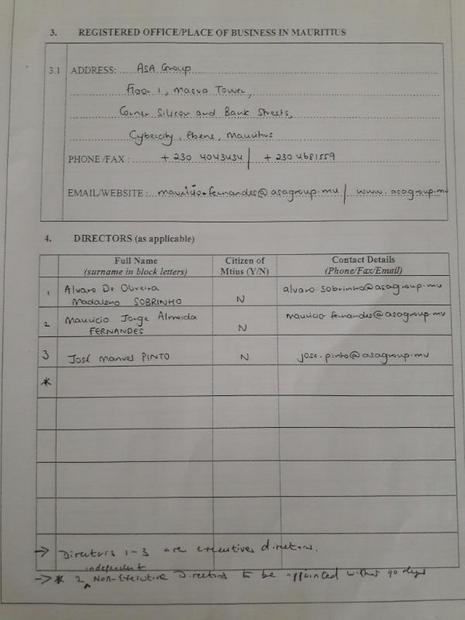 3. REGISTERED OFFICE/PLACE OF BUSINESS IN MAURITIUS
3.1 ADDRESS: ASA Group
Floor 1, Maeva Tower,
Corner Silicon and Bank Streets,
Cybercity, Ebene, Mauritius
PHONE /FAX : + 230 4043434 | + 230 4681559
EMAIL/WEBSITE : mauricio.fernandes@asagroup.mu | www.asagroup.mu
4. DIRECTORS (as applicable)
Full Name Citizen of Contact Details
(surname in block letters) Mtius (Y/N) (Phone/Fax/Email)
1 Alvaro De Oliveira alvaro.sobrinho@asagroup.mu
Madaleno SOBRINHO N
2 Mauricio Jorge Almeida mauricio.fernandes@asagroup.mu
FERNANDES N
3 José Manuel PINTO N jose.pinto@asagroup.mu
*
→ Directors 1-3 are executives directors.
independent
→ * 2 Non-Executive Directors to be appointed within 90 days